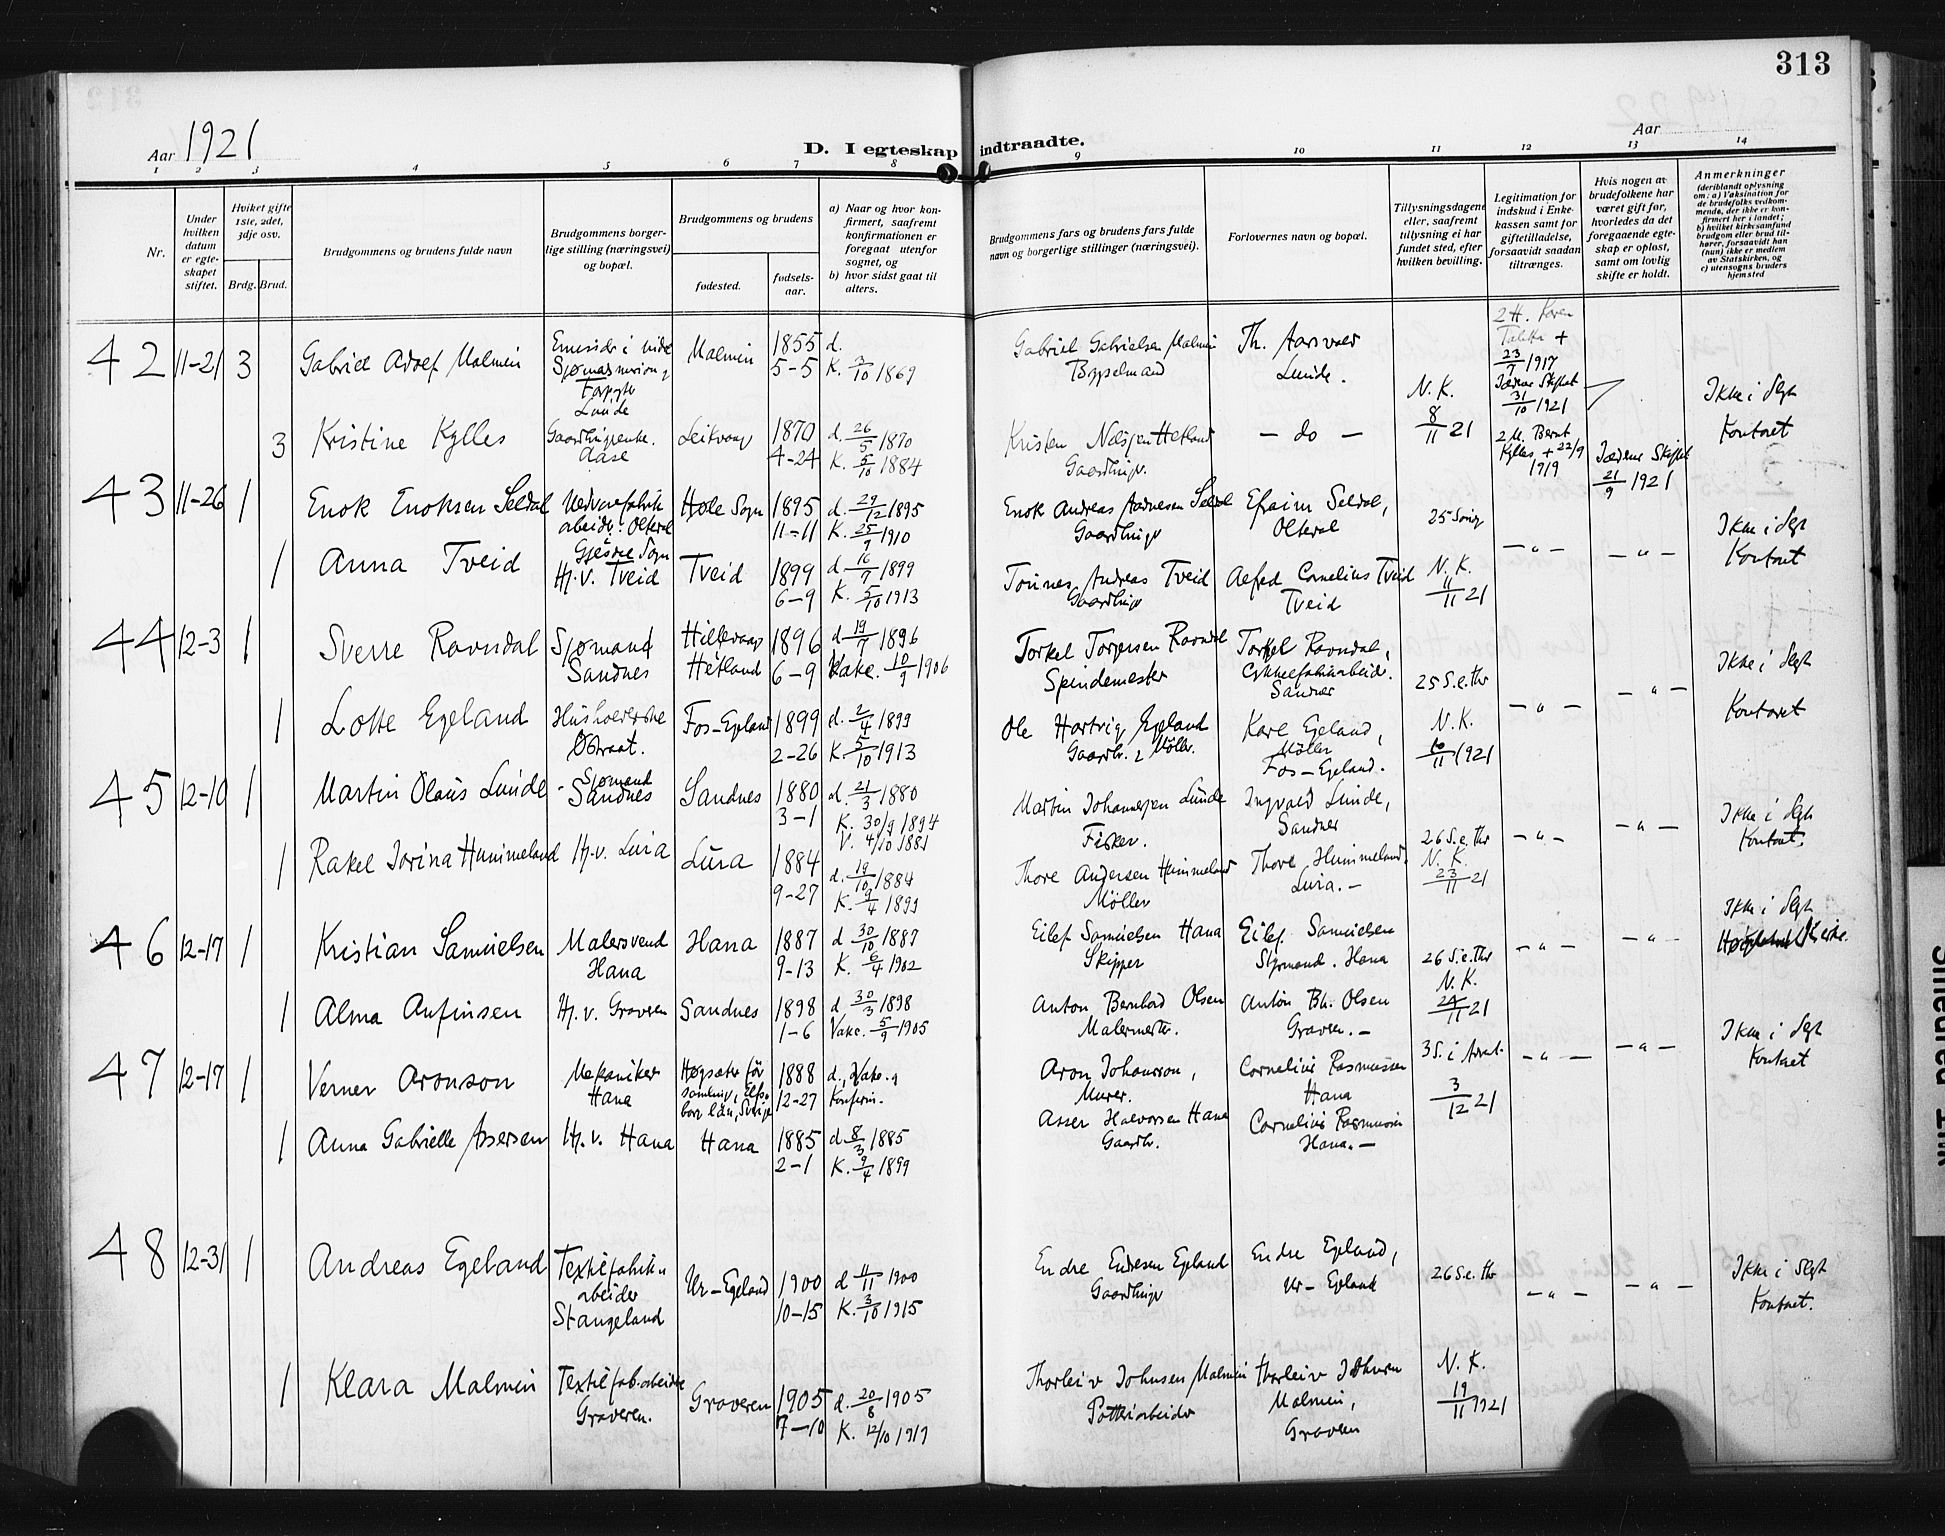 313
Aar 1921
D. I egteskap indtraadte.
Aar
1 2 3 4 5 6 7 8 9 10 11 12 13 14
Nr.
Under hvilken datum er egteskapet stiftet.
Hviket gifte 1ste, 2det, 3dje osv.
Brdg. Brud.
Brudgommens og brudens fulde navn
Brudgommens borgerlige stilling (næringsvei) og bopæl.
Brudgommens og brudens
fødested.
fødselsaar.
a) Naar og hvor konfirmert, saafremt konfirmationen er foregaat utenfor sognet, og
b) hvor sidst gaat til alters.
Brudgommens fars og brudens fars fulde navn og borgerlige stillinger (næringsvei).
Forlovernes navn og bopæl.
Tillysningsdagene eller, saafremt tillysning ei har fundet sted, efter hvilken bevilling.
Legitimation for indskud i Enkekassen samt for giftetilladelse, forsaavidt saadan tiltrænges.
Hvis nogen av brudefolkene har været gift før, hvorledes da det foregaaende egteskap er opløst, samt om lovlig skifte er holdt.
Anmerkninger
(deriblandt oplysning om: a) Vaksination for de brudefolks vedkommende, der ikke er konfirmert her i landet; b) hvilket kirkesamfund brudgom eller brud tilhører, forsaavidt han (hun) ikke er medlem av Statskirken, og c) utensogns bruders hjemsted
42 11-21 3 Gabriel Adolf Malmin
Lunde
Malmin 1855 5-5
d. K. 3/10 1869
Gabriel Gabrielsen Malmin
Th. Aarsvold Lunde.
N. K. 8/11 21
23/7 1917
31/10 1921
Ikke i Slgt Kontaet
3 Kristine Kylles
1870 4-24
d. 26/5 1870 K. 5/10 1884
Kristen Hetland Gaardbruger.
- do -
2 M. Bernt Kylles + 22/9 1919
21/9 1921
43 11-26 1 Enok Enoksen Seldal
arbeider. Olteval
Høle Sogn 1895 11-11
d. 29/12 1895 K. 25/9 1910
Enok Andreas Aadnesen Seldal Gaardbruger
Efraim Seldal, Olteval
25 Song
- " - - " -
Ikke i Slgt Kontaet
1 Anna Tveid
Gjesdal Sogn Hj. v. Tveid
Tveid 1899 6-9
d. 16/7 1899 K. 5/10 1913
Tønnes Andreas Tveid Gaardbruger
Alfred Cornelius Tveid Tveid
N. K. 11/11 21
44 12-3 1 Sverre Ravndal
Sjømand Sandnes
Hillevaag Hetland 1896 6-9
d. 19/7 1896 Vake. 10/9 1906
Torkel Torgersen Ravndal Spindemester
Torkel Ravndal, Cykkelfabrikarbeider. Sandnes
25 S.e.thr
- " - - " -
Ikke i Slgt Kontaet
1 Lotte Egeland
Østraat.
Fos-Egeland 1899 2-26
d. 2/4 1899 K. 5/10 1913
Ole Hartvig Egeland Gaardbr. & Møller.
Karl Egeland, Møller Fos-Egeland.
N. K. 10/11 1921
45 12-10 1 Martin Olaus Lunde
Sjømand Sandnes
Sandnes 1880 3-1
d. 21/3 1880 K. 30/9 1894 V. 4/10 1881
Martin Johannesen Lunde Fisker.
Ingvald Lunde, Sandnes
26 S.e.thr
- " - - " -
Ikke i Slgt Kontaet.
1 Rakel Jorina Hummeland
Hj. v. Lura
Lura 1884 9-27
d. 19/10 1884 K. 9/4 1899
Thore Andersen Hummeland Møller
Thore Hummeland. Lura. -
N. K. 23/11 21
46 12-17 1 Kristian Samuelsen
Malersvend Hana
Hana 1887 9-13
d 30/10 1887 K. 6/4 1902
Eilef Samuelsen Hana Skipper
Eilef Samuelsen Styrmand. Hana
26 S.e.thr
- " - - " -
Ikke i Slgt Kirke.
1 Alma Anfinsen
Hj. v. Graveren
Sandnes 1898 1-6
d 30/3 1898 Vake. 5/9 1905
Anton Bernhard Olsen Malermester.
Anton Bh. Olsen Graveren. -
N. K. 24/11 21
47 12-17 1 Verner Aronson
Mekaniker Hana
Høgsäter församling, Elfsborg län, Sverige 1888 12-27
d., Vake. Konfirm.
Aron Johansson, Murer.
Cornelius Rasmussen Hana
3 S. i Advent
3/12 21
- " - - " -
Ikke i Slgt Kontaet
1 Anna Gabrielle Assersen
Hj. v. Hana
Hana 1885 2-1
d 8/3 1885 K. 9/4 1899
Asser Halvorsen Hana Gaardbr.
Cornelius Rasmussen Hana. -
48 12-31 1 Andreas Egeland
Textilfabrikarbeider Stangeland
Ur-Egeland 1900 10-15
d 11/11 1900 K. 3/10 1915
Endre Endresen Egeland Gaardbruger
Endre Egeland, Ur-Egeland
26 S.e.thr
- " - - " -
Ikke i Slgt Kontaet.
1 Klara Malmin
Textilfab.arbeider Graveren.
Graveren 1905 7-10
d. 20/8 1905 K. 12/10 1919
Thorleiv Johnsen Malmin Potteriarbeider
Thorleiv Malmin, Graveren
N. K. 19/11 1921